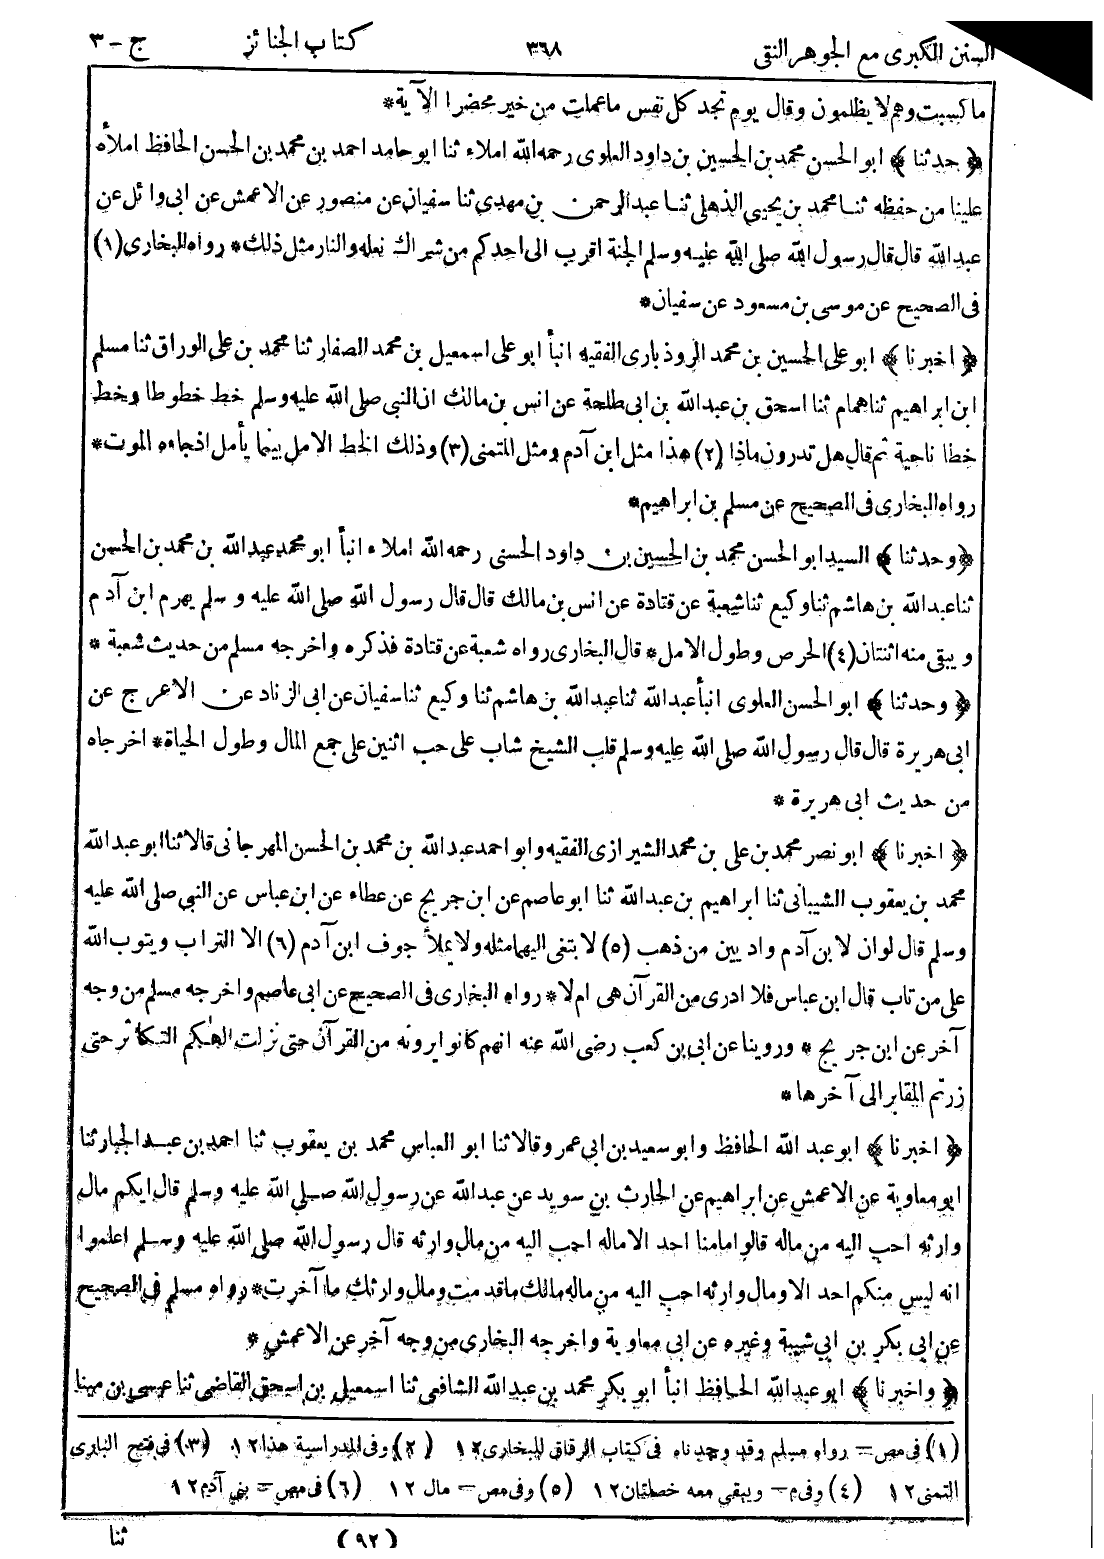 السنن الكبرى مع الجوهر النقى ٣٦٨ كتاب الجنائز ج - ٣
ما كسبت وهم لا يظلمون وقال يوم تجد كل نفس ما عملت من خير محضرا الآية *
﴿ حدثنا ﴾ ابو الحسن محمد بن الحسين بن داود العلوى رحمه الله املاء ثنا ابو حامد احمد بن محمد بن الحسن الحافظ املأه
علينا من حفظه ثنا محمد بن يحيى الذهلى ثنا عبد الرحمن بن مهدى ثنا سفيان عن منصور عن الاعمش عن ابى وائل عن
عبد الله قال قال رسول الله صلى الله عليه وسلم الجنة اقرب الى احدكم من شراك نعله والنار مثل ذلك * رواه البخارى (١)
فى الصحيح عن موسى بن مسعود عن سفيان *
﴿ اخبرنا ﴾ ابو على الحسين بن محمد الروذبارى الفقيه انبأ ابو على اسمعيل بن محمد الصفار ثنا محمد بن على الوراق ثنا مسلم
ابن ابراهيم ثنا همام ثنا اسحق بن عبد الله بن ابى طلحة عن انس بن مالك ان النبى صلى الله عليه وسلم خط خطوطا وخط
خطا ناحية ثم قال هل تدرون ماذا (٢) هذا مثل ابن آدم ومثل المتمنى (٣) وذلك الخط الامل بينما يأمل اذ جاءه الموت *
رواه البخارى فى الصحيح عن مسلم بن ابراهيم *
﴿ وحدثنا ﴾ السيد ابو الحسن محمد بن الحسين بن داود الحسنى رحمه الله املاء انبأ ابو محمد عبد الله بن محمد بن الحسن
ثنا عبد الله بن هاشم ثنا وكيع ثنا شعبة عن قتادة عن انس بن مالك قال قال رسول الله صلى الله عليه وسلم يهرم ابن آدم
ويبقى منه اثنتان (٤) الحرص وطول الامل * قال البخارى رواه شعبة عن قتادة فذكره واخرجه مسلم من حديث شعبة *
﴿ وحدثنا ﴾ ابو الحسن العلوى انبأ عبد الله ثنا عبد الله بن هاشم ثنا وكيع ثنا سفيان عن ابى الزناد عن الاعرج عن
ابى هريرة قال قال رسول الله صلى الله عليه وسلم قلب الشيخ شاب على حب اثنين على جمع المال وطول الحياة * اخرجاه
من حديث ابى هريرة *
﴿ اخبرنا ﴾ ابو نصر محمد بن على بن محمد الشيرازى الفقيه وابو احمد عبد الله بن محمد بن الحسن المهرجانى قالا ثنا ابو عبد الله
محمد بن يعقوب الشيبانى ثنا ابراهيم بن عبد الله ثنا ابو عاصم عن ابن جريج عن عطاء عن ابن عباس عن النبى صلى الله عليه
وسلم قال لو ان لابن آدم واديين من ذهب (٥) لابتغى اليهما مثله ولا يملأ جوف ابن آدم (٦) الا التراب ويتوب الله
على من تاب قال ابن عباس فلا ادرى من القرآن هى ام لا * رواه البخارى فى الصحيح عن ابى عاصم واخرجه مسلم من وجه
آخر عن ابن جريج * وروينا عن ابى بن كعب رضى الله عنه انهم كانوا يرونه من القرآن حتى نزلت الهٰكم التكاثر حتى
زرتم المقابر الى آخرها *
﴿ اخبرنا ﴾ ابو عبد الله الحافظ وابو سعيد بن ابى عمرو قالا ثنا ابو العباس محمد بن يعقوب ثنا احمد بن عبد الجبار ثنا
ابو معاوية عن الاعمش عن ابراهيم عن الحارث بن سويد عن عبد الله عن رسول الله صلى الله عليه وسلم قال ايكم مال
وارثه احب اليه من ماله قالوا ما منا احد الا ماله احب اليه من مال وارثه قال رسول الله صلى الله عليه وسلم اعلموا
انه ليس منكم احد الا ومال وارثه احب اليه من ماله مالك ما قدمت ومال وارثك ما آخرت * رواه مسلم فى الصحيح
عن ابى بكر بن ابى شيبة وغيره عن ابى معاوية واخرجه البخارى من وجه آخر عن الاعمش *
﴿ واخبرنا ﴾ ابو عبد الله الحافظ انبأ ابو بكر محمد بن عبد الله الشافعى ثنا اسمعيل بن اسحق القاضى ثنا عيسى بن مينا
(١) فى مص = رواه مسلم وقد وجدناه فى كتاب الرقاق للبخارى ١٢ (٢) وفى المدراسية هذا ١٢ (٣) فى فتح البارى
التمنى ١٢ (٤) وفى م - ويبقى معه خصلتان ١٢ (٥) وفى مص = مال ١٢ (٦) فى مص = بنى آدم ١٢
(٩٢) ثنا